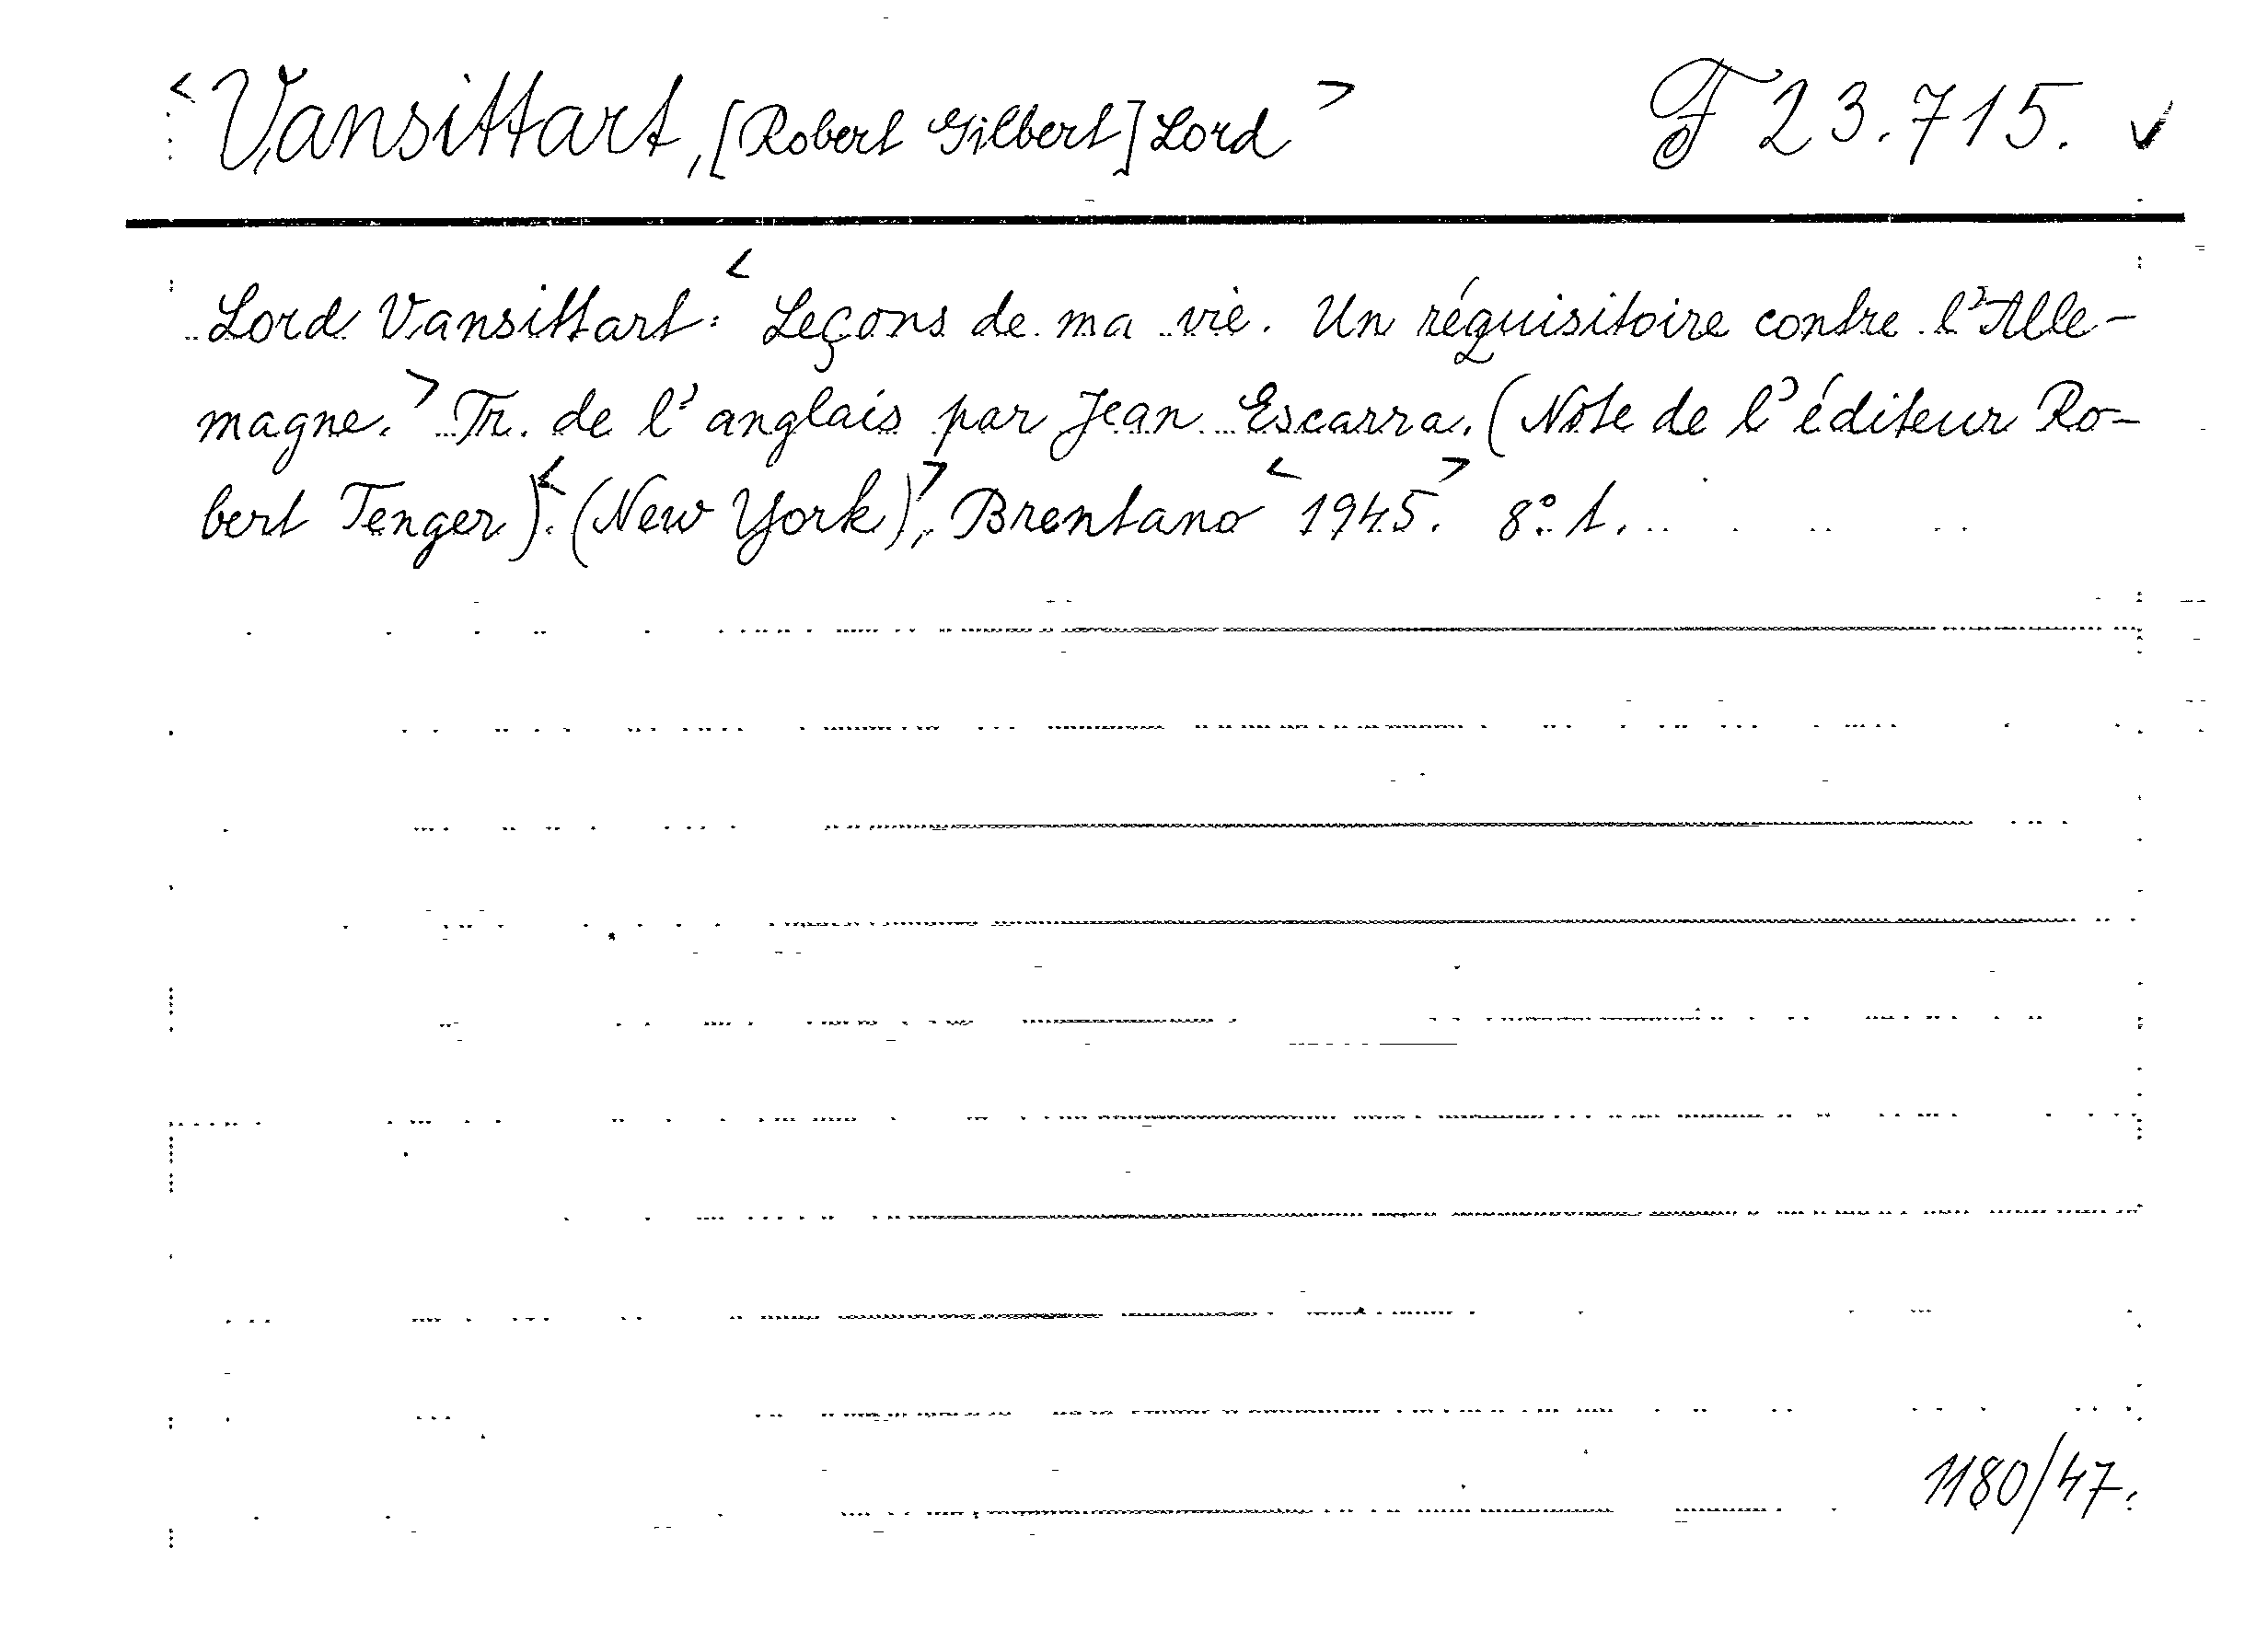 <Vansittart, [Robert Gilbert] Lord> F 23.715. ✓
Lord Vansittart: <Leçons de ma vie. Un réquisitoire contre l'Alle-
magne.> Tr. de l'anglais par Jean Escarra. (Note de l'éditeur Ro-
bert Tenger).<(New York)>, Brentano <1945.> 8° 1.
1180/47.